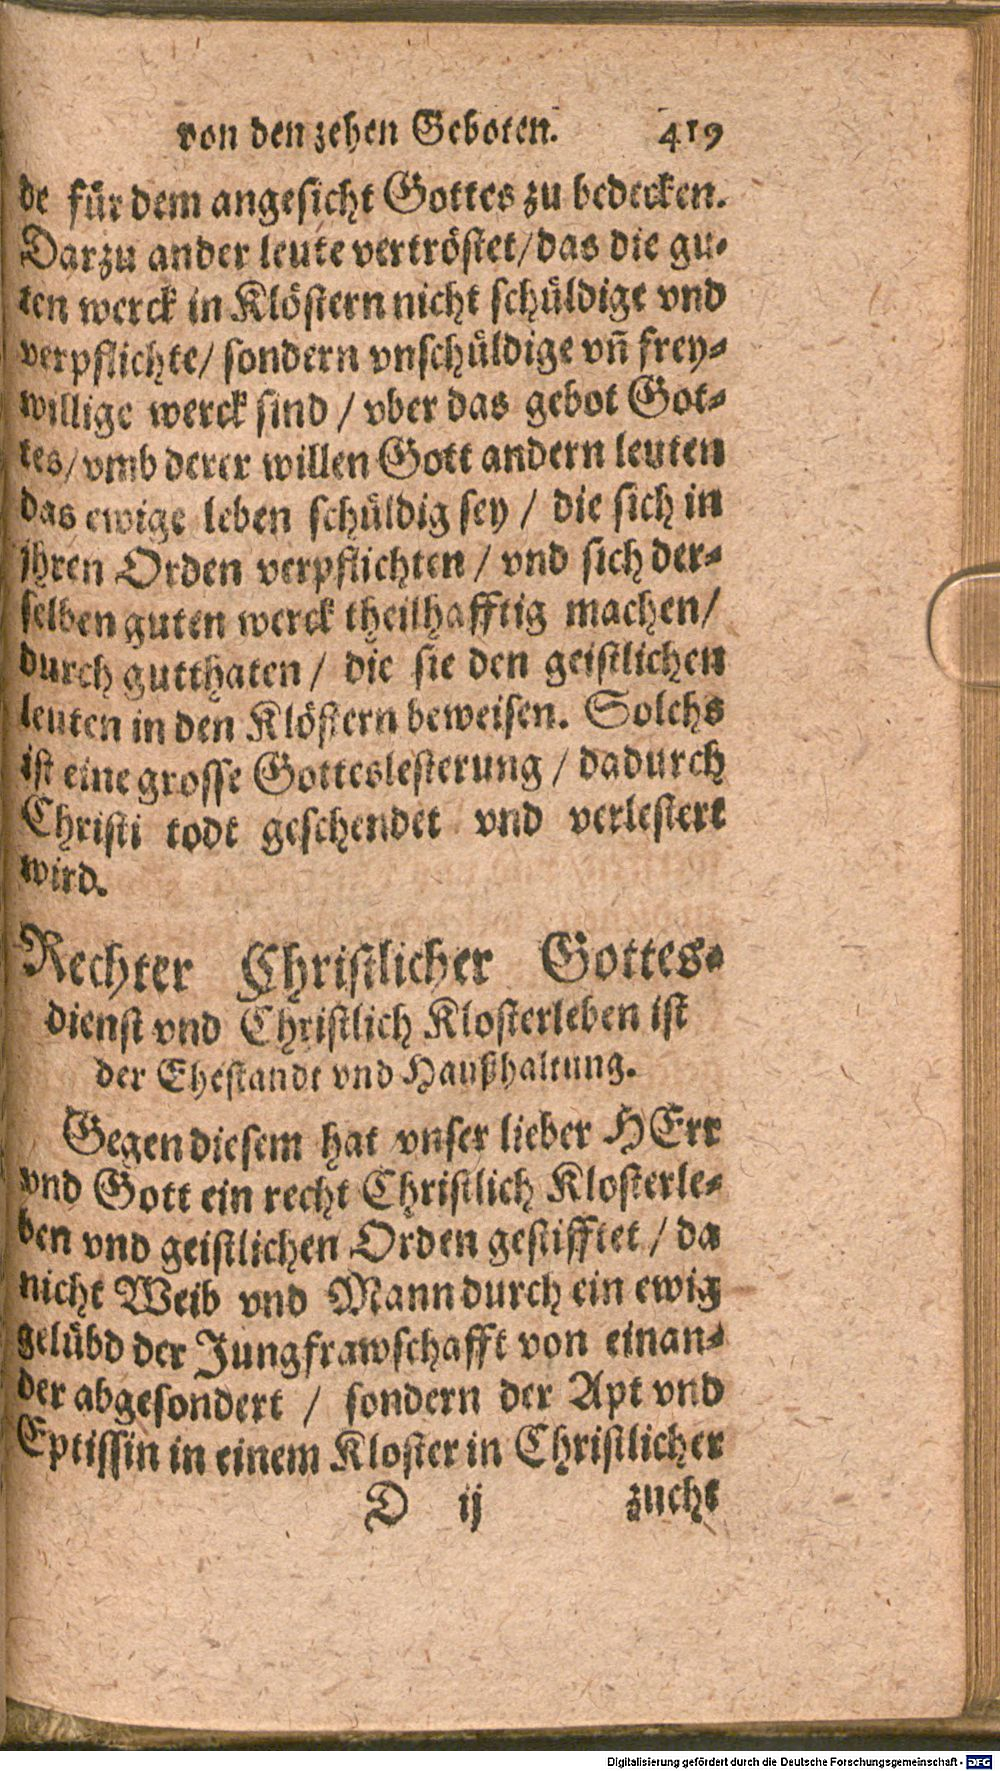 von den zehen Geboten. 419
de für dem angesicht Gottes zu bedecken.
Darzu ander leute vertröstet/das die gu-
ten werck in Klöstern nicht schüldige vnd
verpflichte/ sondern vnschüldige vñ frey-
willige werck sind / vber das gebot Got-
tes/vmb derer willen Gott andern leuten
das ewige leben schüldig sey / die sich in
ihren Orden verpflichten / vnd sich der-
selben guten werck theilhafftig machen/
durch gutthaten / die sie den geistlichen
leuten in den Klöstern beweisen. Solchs
ist eine grosse Gotteslesterung / dadurch
Christi todt geschendet vnd verlestert
wird.
Rechter Christlicher Gottes-
dienst vnd Christlich Klosterleben ist
der Ehestandt vnd Haußhaltung.
Gegen diesem hat vnser lieber HErr
vnd Gott ein recht Christlich Klosterle-
ben vnd geistlichen Orden gestifftet / da
nicht Weib vnd Mann durch ein ewig
gelübd der Jungfrawschafft von einan-
der abgesondert / sondern der Apt vnd
Eptissin in einem Kloster in Christlicher
D ij zucht
Digitalisierung gefördert durch die Deutsche Forschungsgemeinschaft - DFG